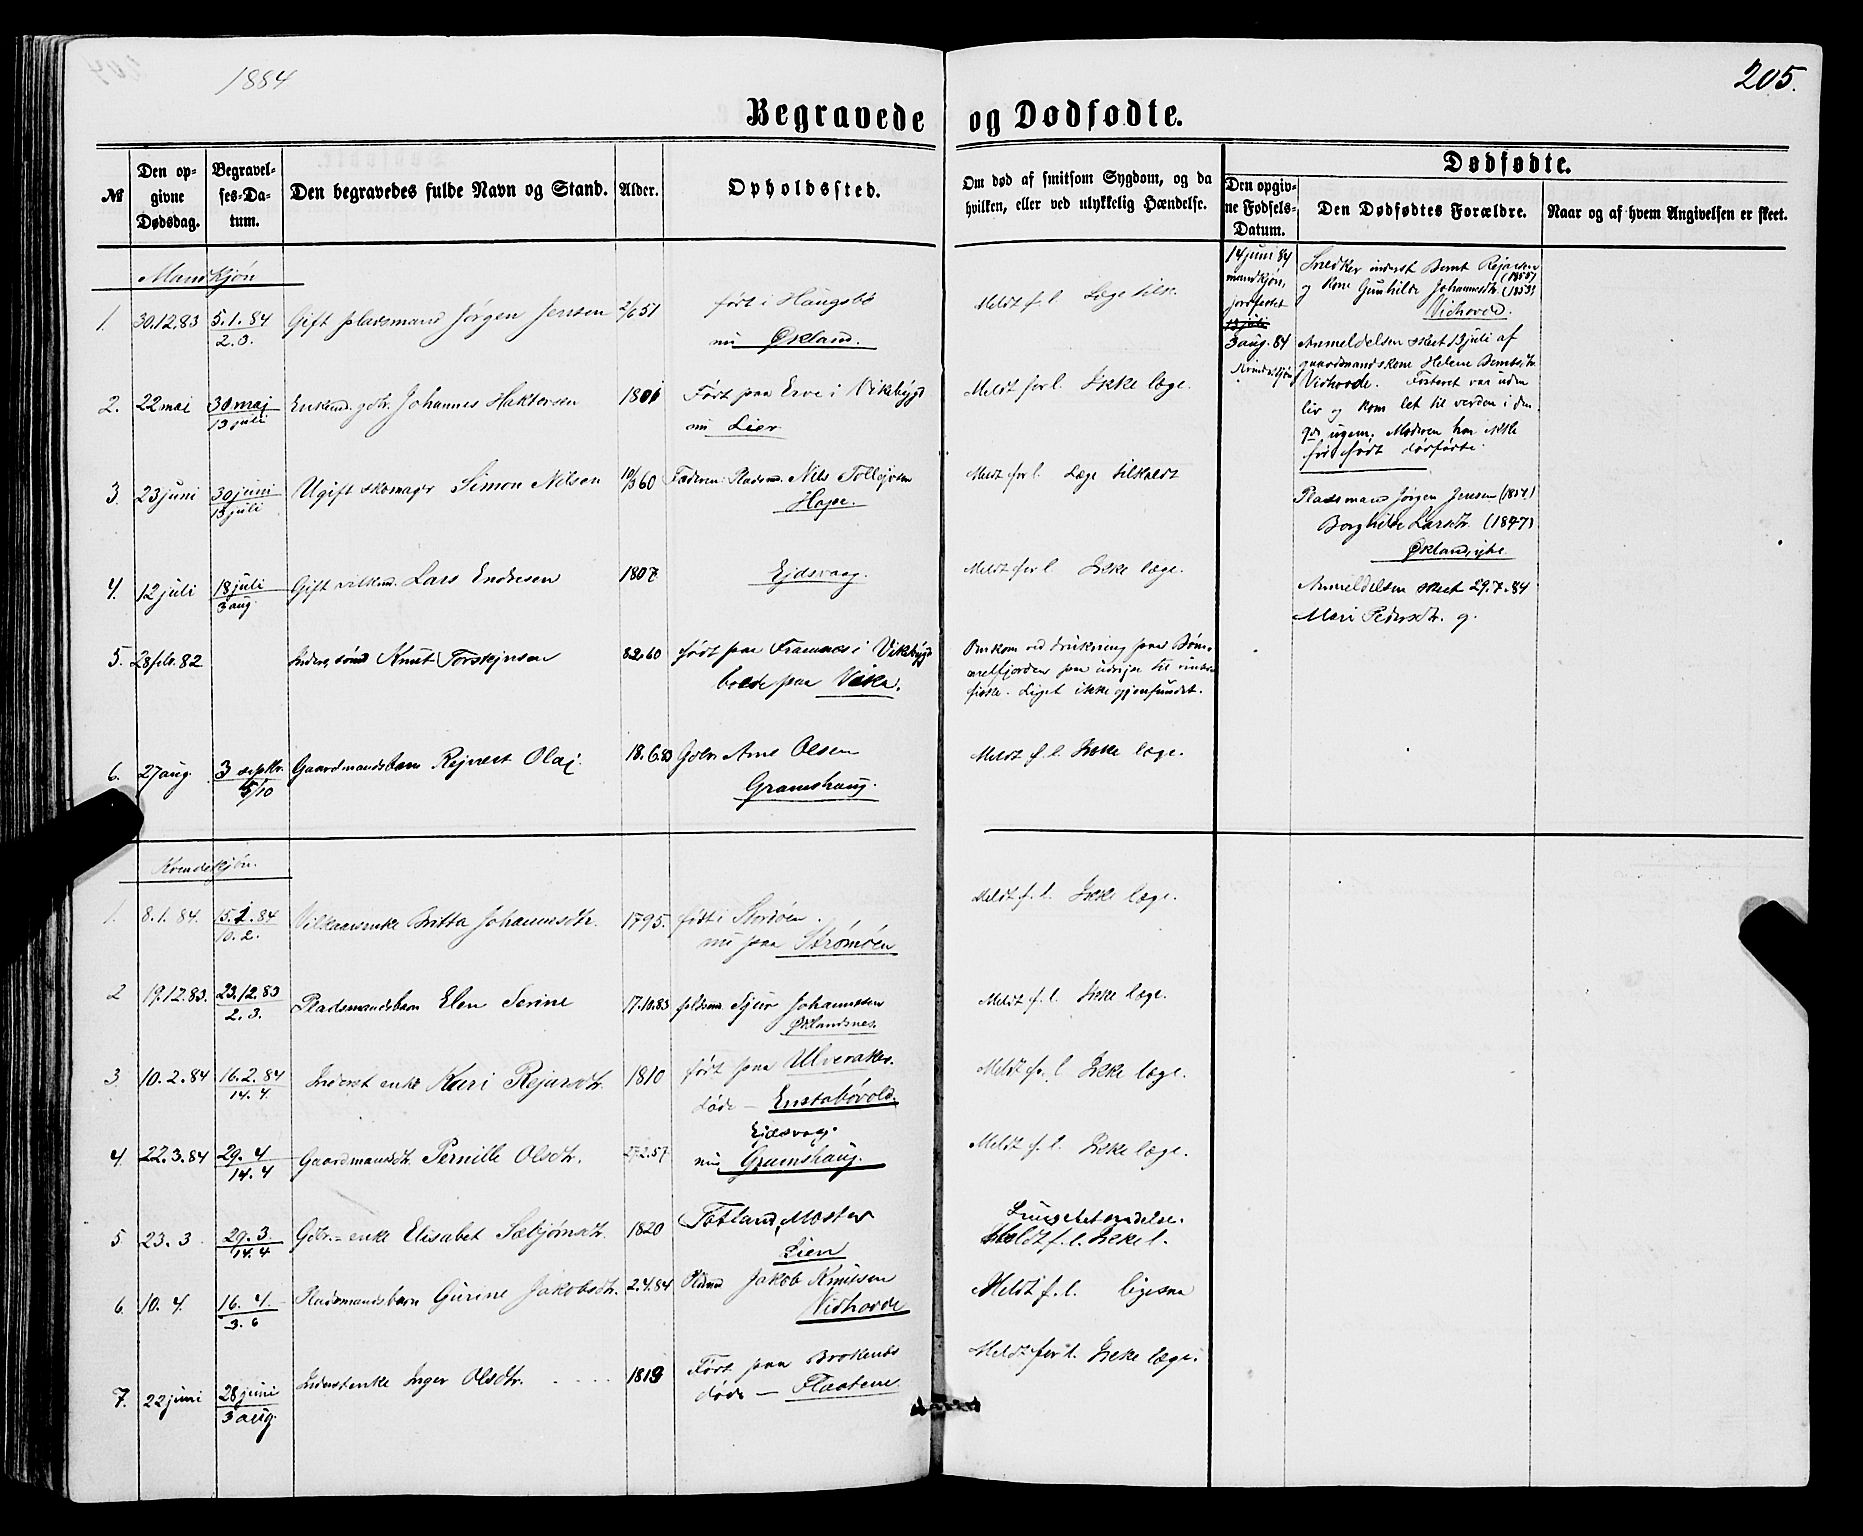 1884
205.
Begravede og Dødfødte.
Dødfødte.
№
Den opgivne Dødsdag.
Begravelses-Datum.
Den begravedes fulde Navn og Stand.
Alder.
Opholdssted.
Om død af smitsom Sygdom, og da hvilken, eller ved ulykkelig Hændelse.
Den opgivne Fødsels-Datum.
Den Dødfødtes Forældre.
Naar og af hvem Angivelsen er skeet.
Mandkjøn
1. 30.12.83 5.1.84 Gift pladsmand Jørgen Jensen 2/6 51 født i Haugsbø Meldt f. l. Læge tilk.
2.3. nu Økland.
2. 22 mai 30 maj Enkemd. gbr. Johannes Haktorsen 1801 Født paa Erve i Vikebygd Meldt for l. Ikke læge.
13 juli nu Lier
3. 23 juni 30 juni Ugift skomager Simon Nilsen 10/3 60 Faderen: Pladsmd. Nils Tollejvsen Meldt for l. Læge tilkaldt
13 juli Hope.
4. 12 juli 18 juli Gift vilkmd. Lars Endresen 1807 Ejdsvaag. Meldt for l. Ikke læge.
3 aug.
5. 28 febr. 82 Knut Torskejnsen 8.2.60 født paa Framnes i Vikebygd Omkom ved drukning paa Bøm-
boede paa Vika. melfjorden paa udrejse til vinter
fiske. Liget ikke gjenfundet.
6. 27 aug. 3 septbr. Gaardmandsbarn Rejnert Olaj 18.6.83 Gdbr. Arne Olsen Meldt f. l. Ikke læge.
5/10 Gramshaug.
14 juni 84
mandkjøn,
jordfæstet
13 juli
3 aug. 84
Kvindekjøn
Snedker inderst Bernt Rejarsen (1855)
og kone Gunhilde Johannesdtr. (1853)
Vidhovde.
Anmeldelsen skeet 13 juli af
gaardmandskone Helene Berntsdtr.
Vidhovde. Fosteret var uden
liv og kom let til verden i den
9de ugen. Moderen har ikke
før født dødfødte.
Pladsmand Jørgen Jensen (1851)
Borghilde Larsdtr. (1847)
Økland, ytre
Anmeldelsen skeet 29.7.84
Mari Pedersdtr. g.
Kvindekjøn.
1. 8.1.84. 15.1.84 Vilkaarsenke Britta Johannesdtr. 1795. født i Stordøen. Meldt f. l. Ikke læge.
10.2. nu paa Strømøen
2 19.12.83. 23.12.83 Pladsmandsbarn Elen Serine 17.10.83 pldsm. Sjur Johannessen Meldt f. l. Ikke læge.
2.3. Øklandsnes.
3 10.2.84 16.2.84 Inderst enke Kari Rejarsdtr. 1810 født paa Ulveraker. Meldt for l Ikke læge.
14.4. døde — Enstabøvold.
4. 22.3.84 29.4 Gaardmandsdtr. Pernille Olsdtr. 27.2.57 Ejdsvag. Meldt f. l. Ikke læge.
14.4 nu Gramshaug.
5. 23.3 29.3. Gdbr.- enke Elisabet Sæbjørnsdtr. 1820 Totland, Moster Lungebetændelse.
14.4 Lien Meldt f. l. Ikke l.
6. 10.4. 16.4. Pladsmandsbarn Gurine Jakobsdtr. 2.4.84 Pldsmd Jakob Knutsen Meldt f. l. ligesaa
3.6 Vidhovde
7. 22 juni 28 juni Inderstenke Inger Olsdtr. 1819 Født paa Brokenes Meldt for l. Ikke læge.
3 aug. døde — Flaatene